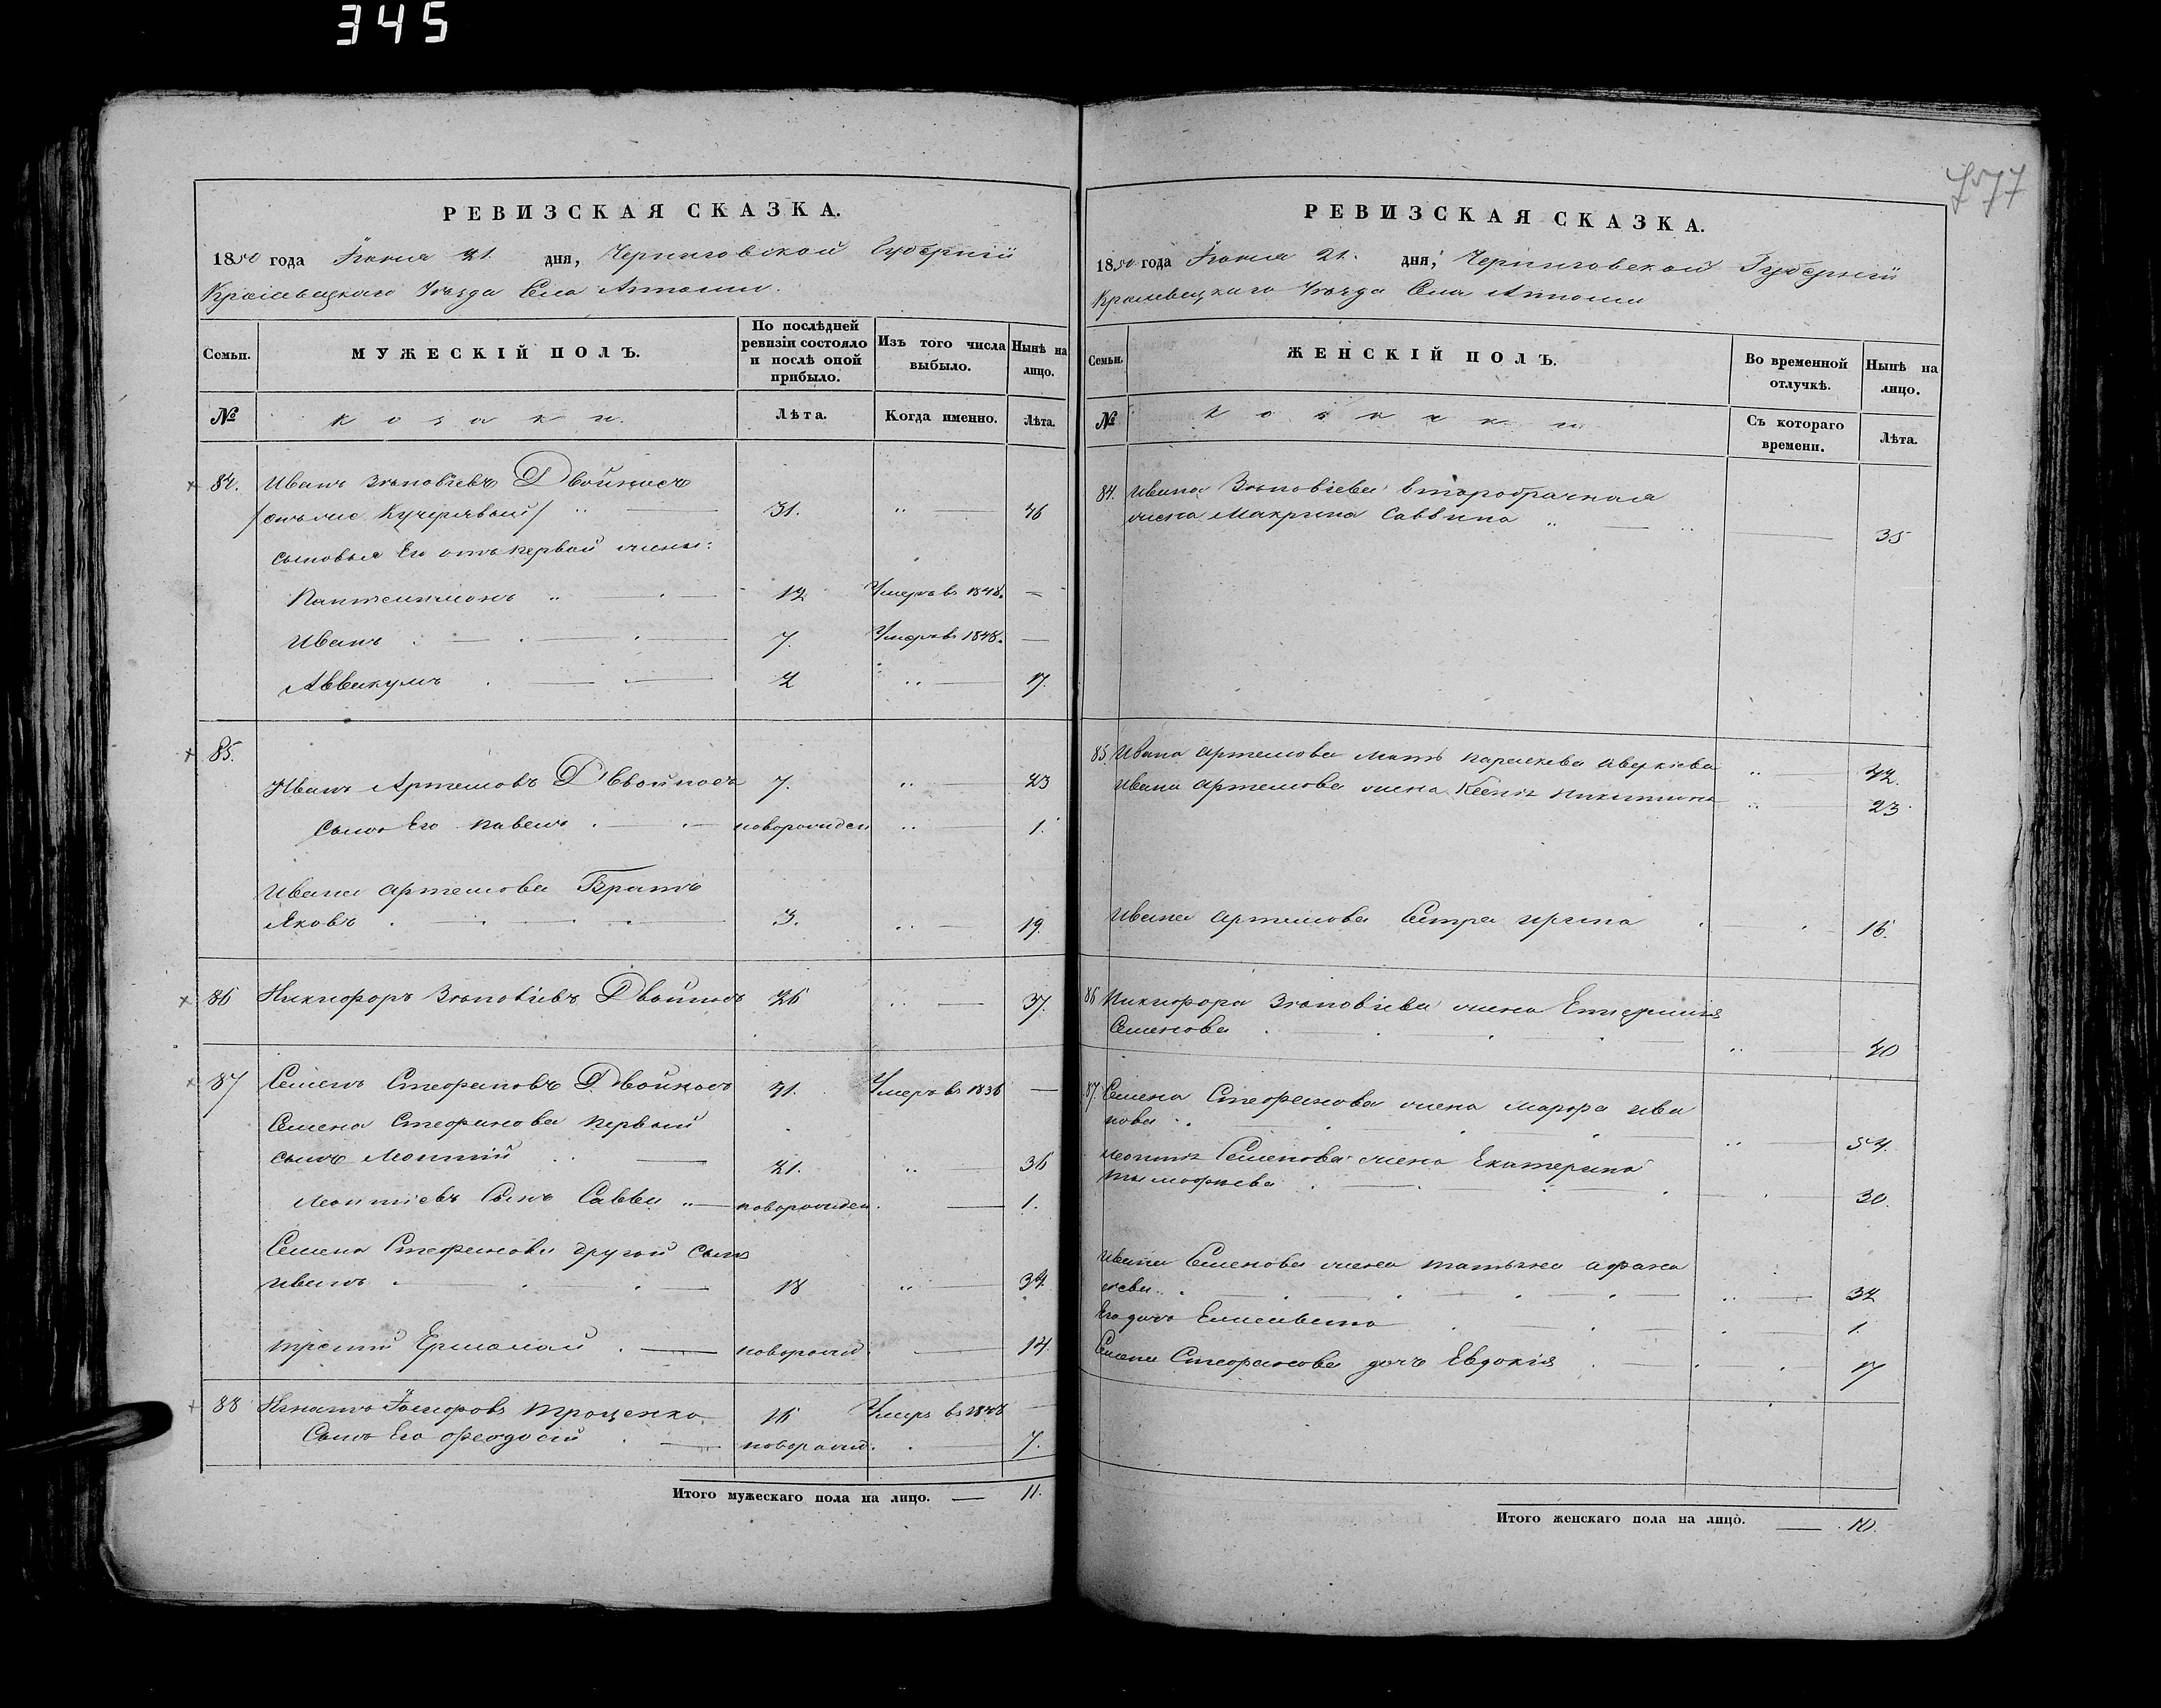 345
577
РЕВИЗСКАЯ СКАЗКА.
1850 года Іюня 21. дня, Черниговской Губерніи
Кролевецкаго Уѣзда Села
Семьи.
МУЖЕСКІЙ ПОЛЪ.
По послѣдней ревизіи состояло и послѣ оной прибыло.
Изъ того числа выбыло.
Нынѣ на лицо.
№
козаки.
Лѣта.
Когда именно.
Лѣта.
84. Иванъ Зѣновіевъ Двойносъ
/онъ же Кучерявый/ " 31. " 46
сыновья Его отъ первой жены:
Пантелимонъ " 12 Умеръ въ 1848. —
Иванъ 7. Умеръ въ 1848. —
Аввакумъ 2 " 17.
85.
Иванъ Артемовъ Двойносъ 7. " 23
Сынъ Его Павелъ новорожден " 1.
Ивана Артемова Братъ
Яковъ 3. " 19.
86 Никифоръ Зѣновіевъ Двойносъ 26 " 37.
87 Семенъ Стефановъ Двойносъ 41. Умеръ въ 1836 —
Семена Стефанова первый
сынъ Леонтій 21. " 36
Леонтіевъ Сынъ Савва " новорожден. 1.
Семена Стефанова другой Сынъ
Иванъ 18 " 34.
третій Ермолай новорожд. 14
88 Игнатъ Троценко 16 Умеръ въ —
Сынъ Его Феодосій новорожд. 7.
Итого мужескаго пола на лицо. — 11.
РЕВИЗСКАЯ СКАЗКА.
1850 года Іюня 21. дня, Черниговской Губерніи
Кролевецкаго Уѣзда Села
Семьи.
ЖЕНСКІЙ ПОЛЪ.
Во временной отлучкѣ.
Нынѣ на лицо.
№
Съ котораго времени.
Лѣта.
84. Ивана Зѣновіева второбрачная
жена Макрина Саввина " 35
85. Ивана Артемова Мать Параскева Аверкіева " 42.
Ивана Артемова жена Ксенія Никитина " 23.
Ивана Артемова Сестра Ирина 16.
86 Никифора Зѣновіева жена Евгенія
Семенова " 40
87. Семена Стефанова жена Марфа Ива
нова " 54.
Леонтія Семенова жена Екатерина
Тимофіева 30.
Ивана Семенова жена Татьяна Афана
сіева " 32
Его дочь Елисавета 1.
Семена Стефанова дочь Евдокія 17
Итого женскаго пола на лицо. — 10.